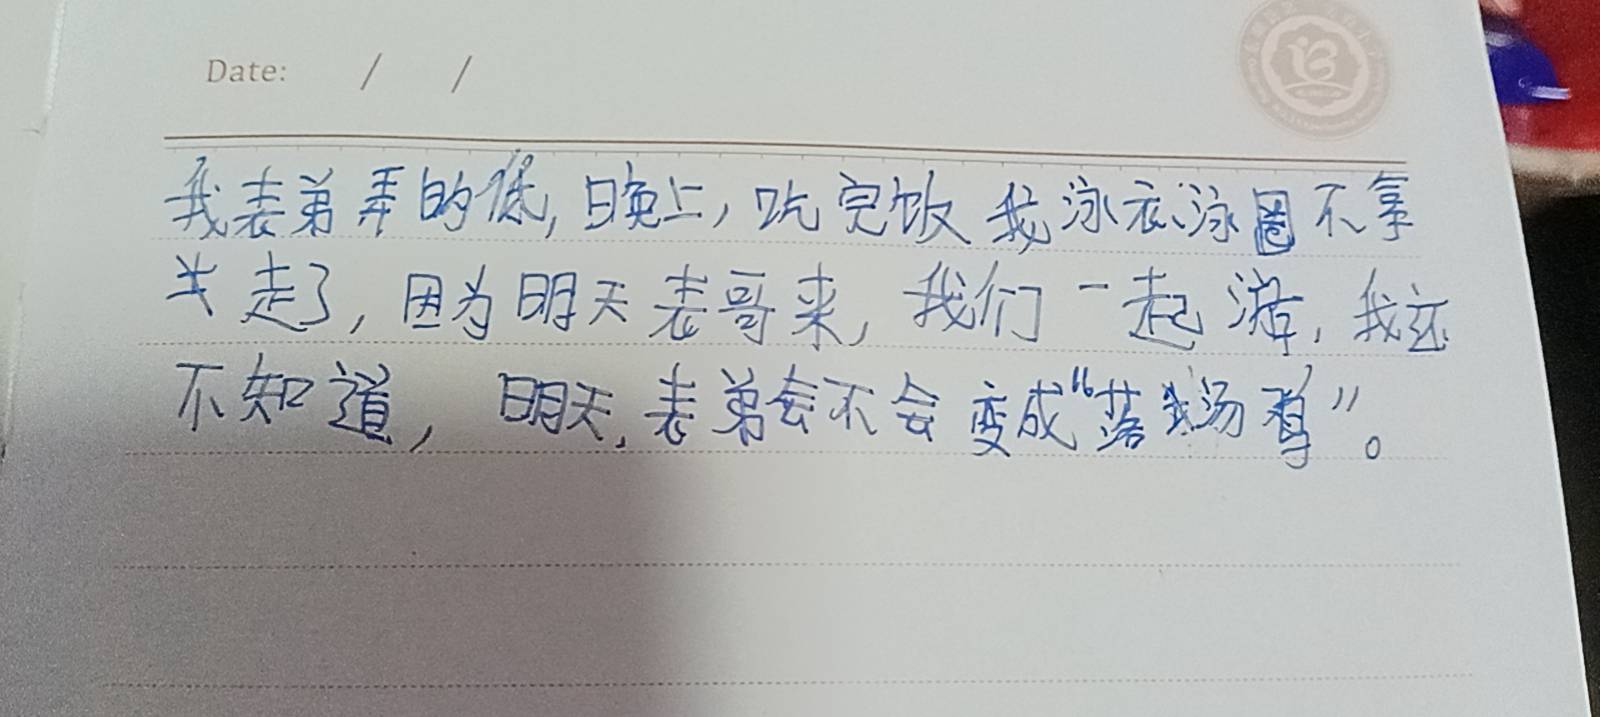 Date: / /
我表弟弄的低,日晚上,吃完饭我泳衣泳圈不拿
走了,因为明天表哥来,我们一起游,我还
不知道,明天,表弟会不会变成“落汤鸡”。